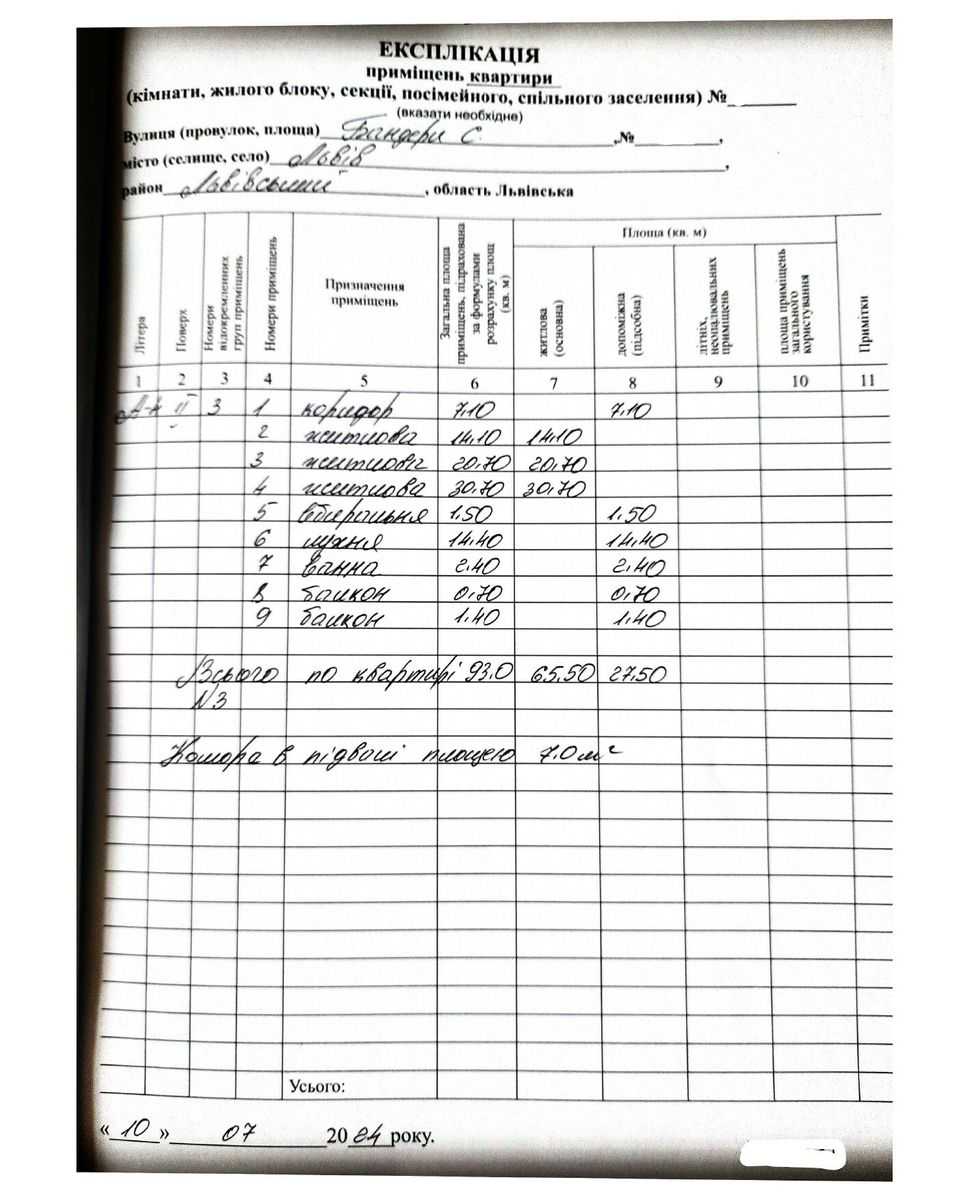 ЕКСПЛІКАЦІЯ
приміщень квартири
(кімнати, жилого блоку, секції, посімейного, спільного заселення) №
(вказати необхідне)
Вулиця (провулок, площа) Бандери С. ,№ ,
місто (селище, село) Львів ,
район Львівський , область Львівська
Літера
Поверх
Номери відокремленних груп приміщень
Номери приміщень
Призначення приміщень
Загальна площа приміщень, підрахована за формулами розрахунку площ (кв. м)
Площа (кв. м)
житлова (основна)
допоміжна (підсобна)
літніх, неопалювальних приміщень
площа приміщень загального користування
Примітки
1 2 3 4 5 6 7 8 9 10 11
А-4 II 3 1 коридор 7.10 7.10
2 житлова 14.10 14.10
3 житлова 20.70 20.70
4 житлова 30.70 30.70
5 вбиральня 1.50 1.50
6 кухня 14.40 14.40
7 ванна 2.40 2.40
8 балкон 0.70 0.70
9 балкон 1.40 1.40
Всього по квартирі 93.0 65.50 27.50
N3
Комора в підвалі площею 7.0 м²
Усього:
«10» 07 2024 року.